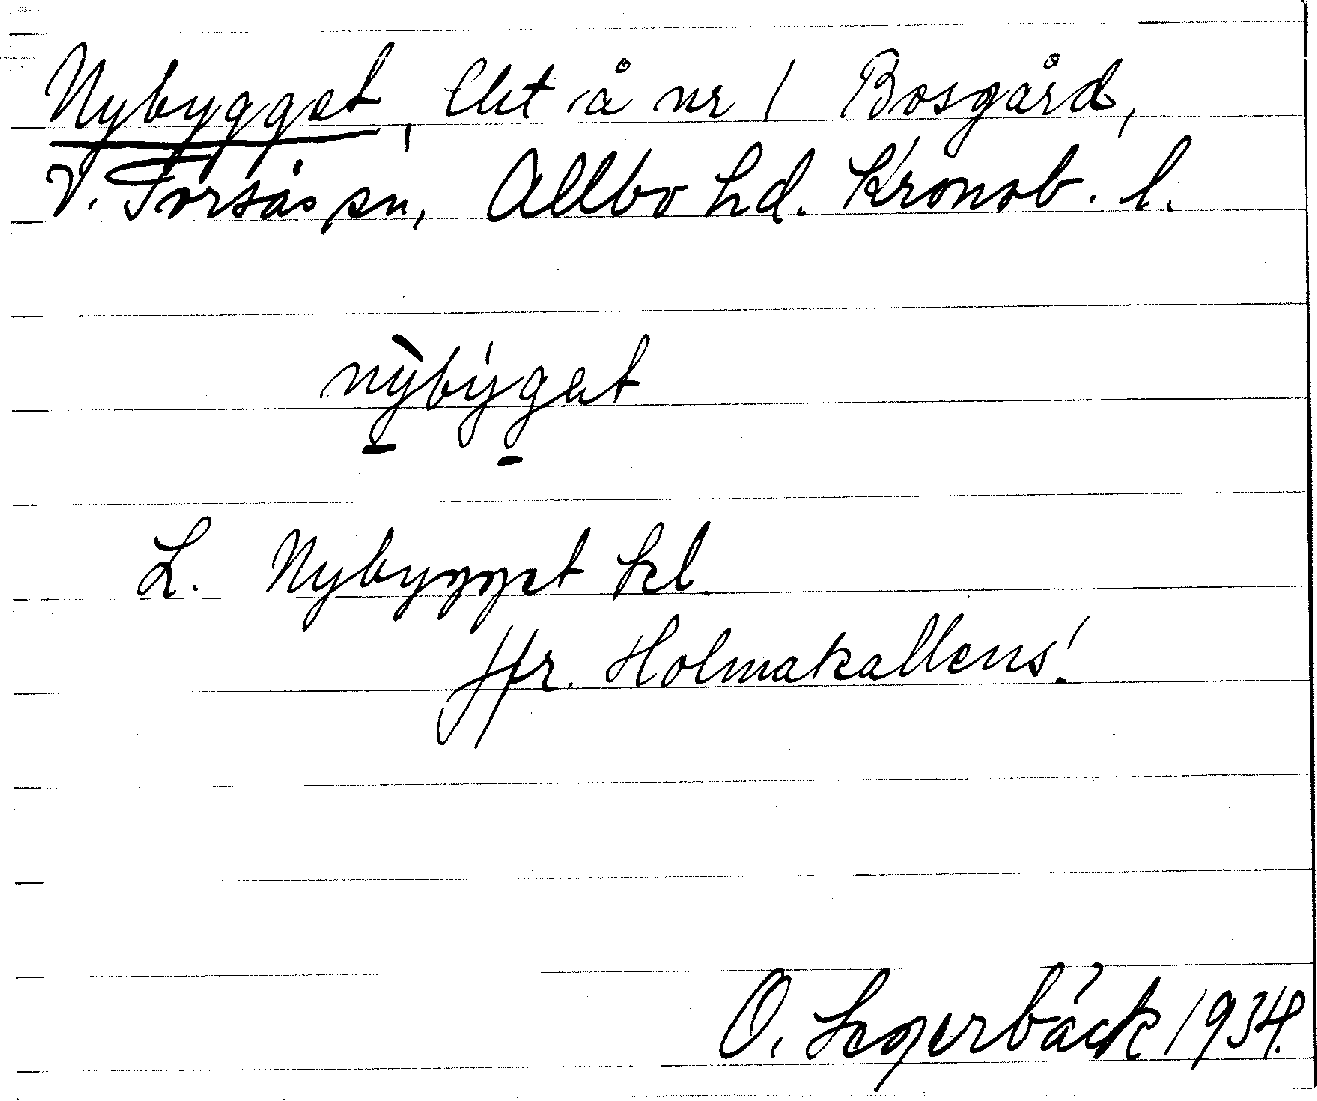 Nybygget, lht å nr 1 Bosgård,
V. Torsås sn, Allbo hd. Kronob. l.
nỳbýget
L. Nybygget hd.
Jfr. Holmakallens!
O. Lagerbäck 1934.